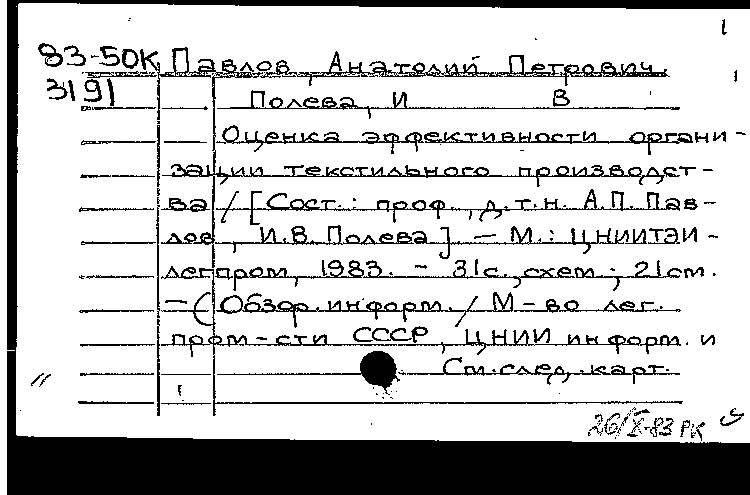 83-50К Павлов, Анатолий Петрович,
3191 Полева, И В
Оценка эффективности органи-
зации текстильного производст-
ва / [Сост.: проф., д.т.н. А.П. Пав-
лов, И.В. Полева]. — М.: ЦНИИТЭИ-
легпром, 1983. - 31с., схем.; 21см.
—(Обзор. информ. / М-во лег.
пром-сти СССР, ЦНИИ информ. и
См. след. карт.
26/X-83 РК